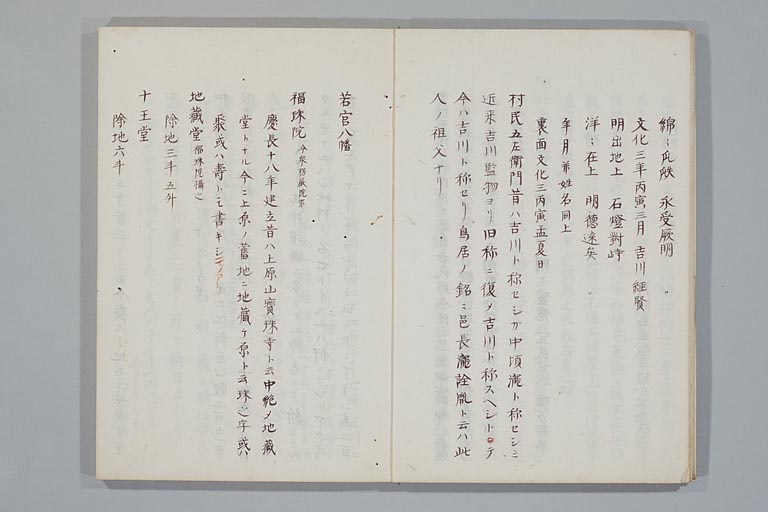 綿々瓜瓞 永受厥明
文化三年丙寅三月 吉川経賢
明出地上 石燈對峙
洋々在上 明德遠矣
年月並姓名同上
裏面文化三丙寅孟夏日
村民五左衛門昔ハ吉川ト称セシカ中頃瀧ト称セシニ
近来吉川監物ヨリ旧称ニ復メ吉川ト称スヘシトテ
今ハ吉川ト称セリ鳥居ノ銘ニ邑長瀧詮胤ト云ハ此
人ノ祖父ナリ
若宮八幡
福珠院
慶長十八年建立昔ハ上原山寳珠寺ト云中絶メ地藏
堂トナル今ニ上原ノ舊地ニ地藏ケ原ト云珠ノ字或ハ
聚或ハ壽トモ書キシモノアリ
地藏堂 福珠院攝之
除地三斗五升
十王堂
除地六斗